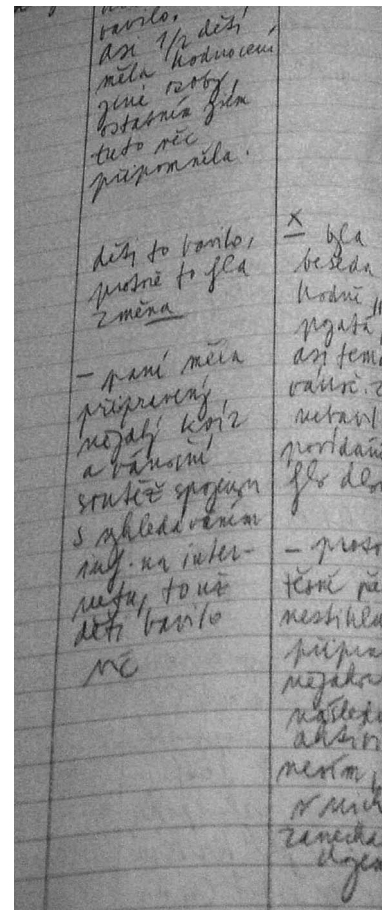 bavilo.
asi 1/2 dětí
měla hodnocení
jiné osoby,
ostatním jsem
tuto věc
připomněla.
děti to bavilo,
protože to byla
změna
- paní měla
připravený
nějaký kvíz
a vánoční
soutěž spojenou
s vyhledáváním
inf. na inter-
netu, to už
děti bavilo
víc
x byla
beseda
hodně
pojatá,
asi tema
vánoč.
nebavil
povídání
- proto
nestihla
připra
nějakou
následn
aktivi
nevím,
v nich
zanecha
dojem